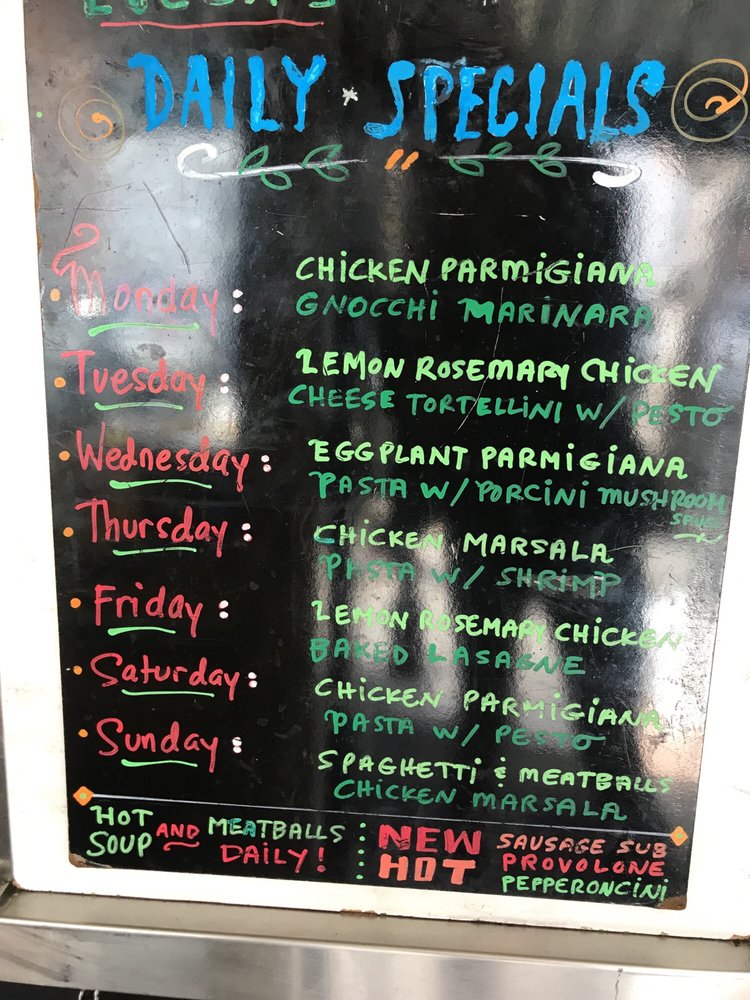 DAILY * SPECIALS
Monday: CHICKEN PARMIGIANA
GNOCCHI MARINARA
Tuesday: LEMON ROSEMARY CHICKEN
CHEESE TORTELLINI W/ PESTO
Wednesday: EGGPLANT PARMIGIANA
PASTA W/ PORCINI MUSHROOM
SAUCE
Thursday: CHICKEN MARSALA
PASTA W/ SHRIMP
Friday: LEMON ROSEMARY CHICKEN
BAKED LASAGNE
Saturday: CHICKEN PARMIGIANA
PASTA W/ PESTO
Sunday: SPAGHETTI & MEATBALLS
CHICKEN MARSALA
HOT SOUP AND MEATBALLS DAILY!
NEW HOT
SAUSAGE SUB
PROVOLONE
PEPPERONCINI